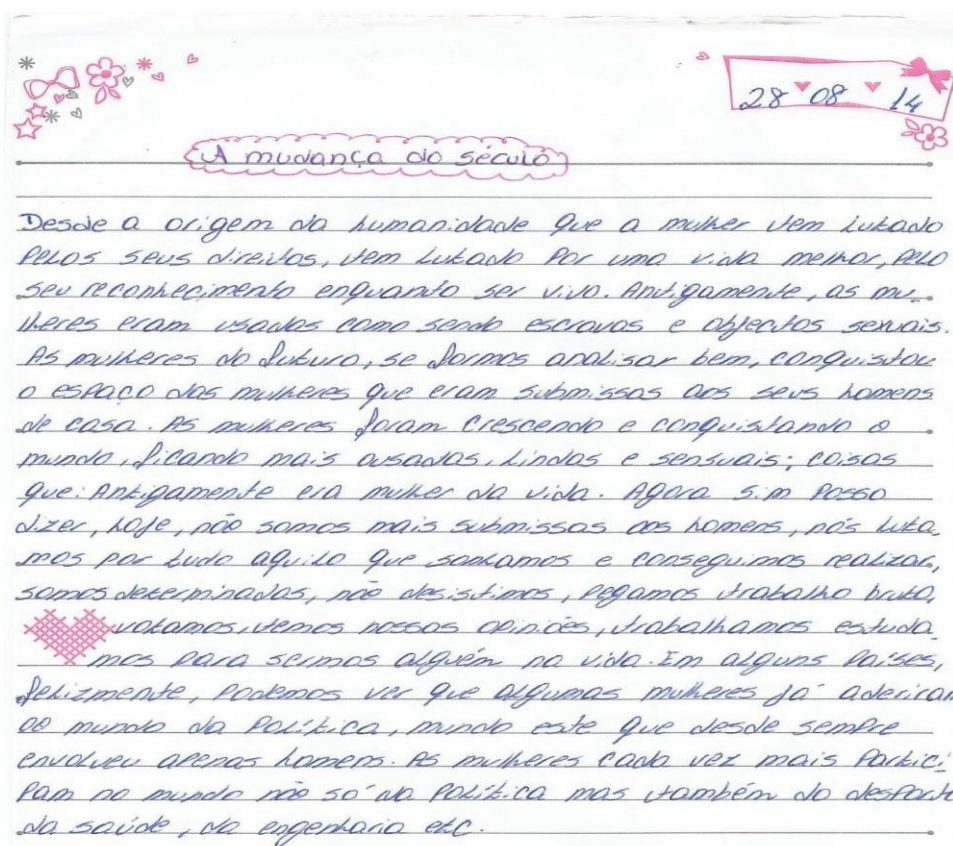 28 08 14
A mudança do século
Desde a origem da humanidade que a mulher tem lutado
pelos seus direitos, tem lutado por uma vida melhor, pelo
seu reconhecimento enquanto ser vivo. Antigamente, as mu_
lheres eram usadas como sendo escravas e objectos sexuais.
As mulheres do futuro, se formos analisar bem, conquistou
o espaço das mulheres que eram submissas aos seus homens
de casa. As mulheres foram crescendo e conquistando o
mundo, ficando mais ousadas, lindas e sensuais; coisas
que: Antigamente era mulher da vida. Agora sim posso
dizer, hoje, não somos mais submissas aos homens, nós luta_
mos por tudo aquilo que sonhamos e conseguimos realizar,
somos determinadas, não desistimos, pegamos trabalho bruto,
votamos, temos nossas opiniões, trabalhamos estuda_
mos para sermos alguém na vida. Em alguns países,
felizmente, podemos ver que algumas mulheres já aderiram
ao mundo da política, mundo este que desde sempre
envolveu apenas homens. As mulheres cada vez mais partici_
pam no mundo não só da política mas também do desporto
da saúde, da engenharia etc.